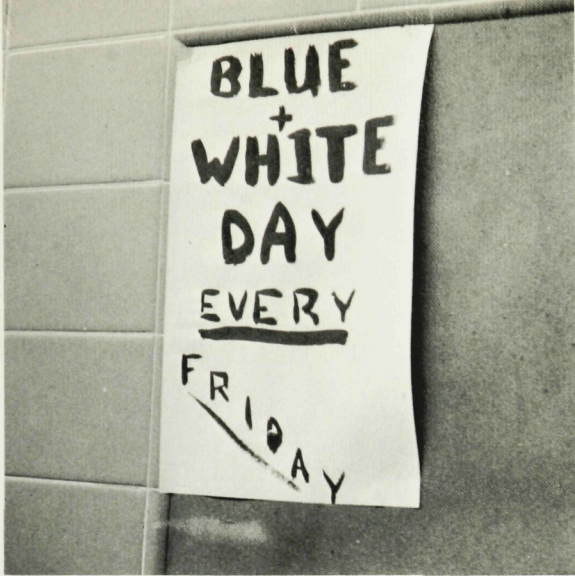 BLUE
+
WHITE
DAY
EVERY
FRIDAY